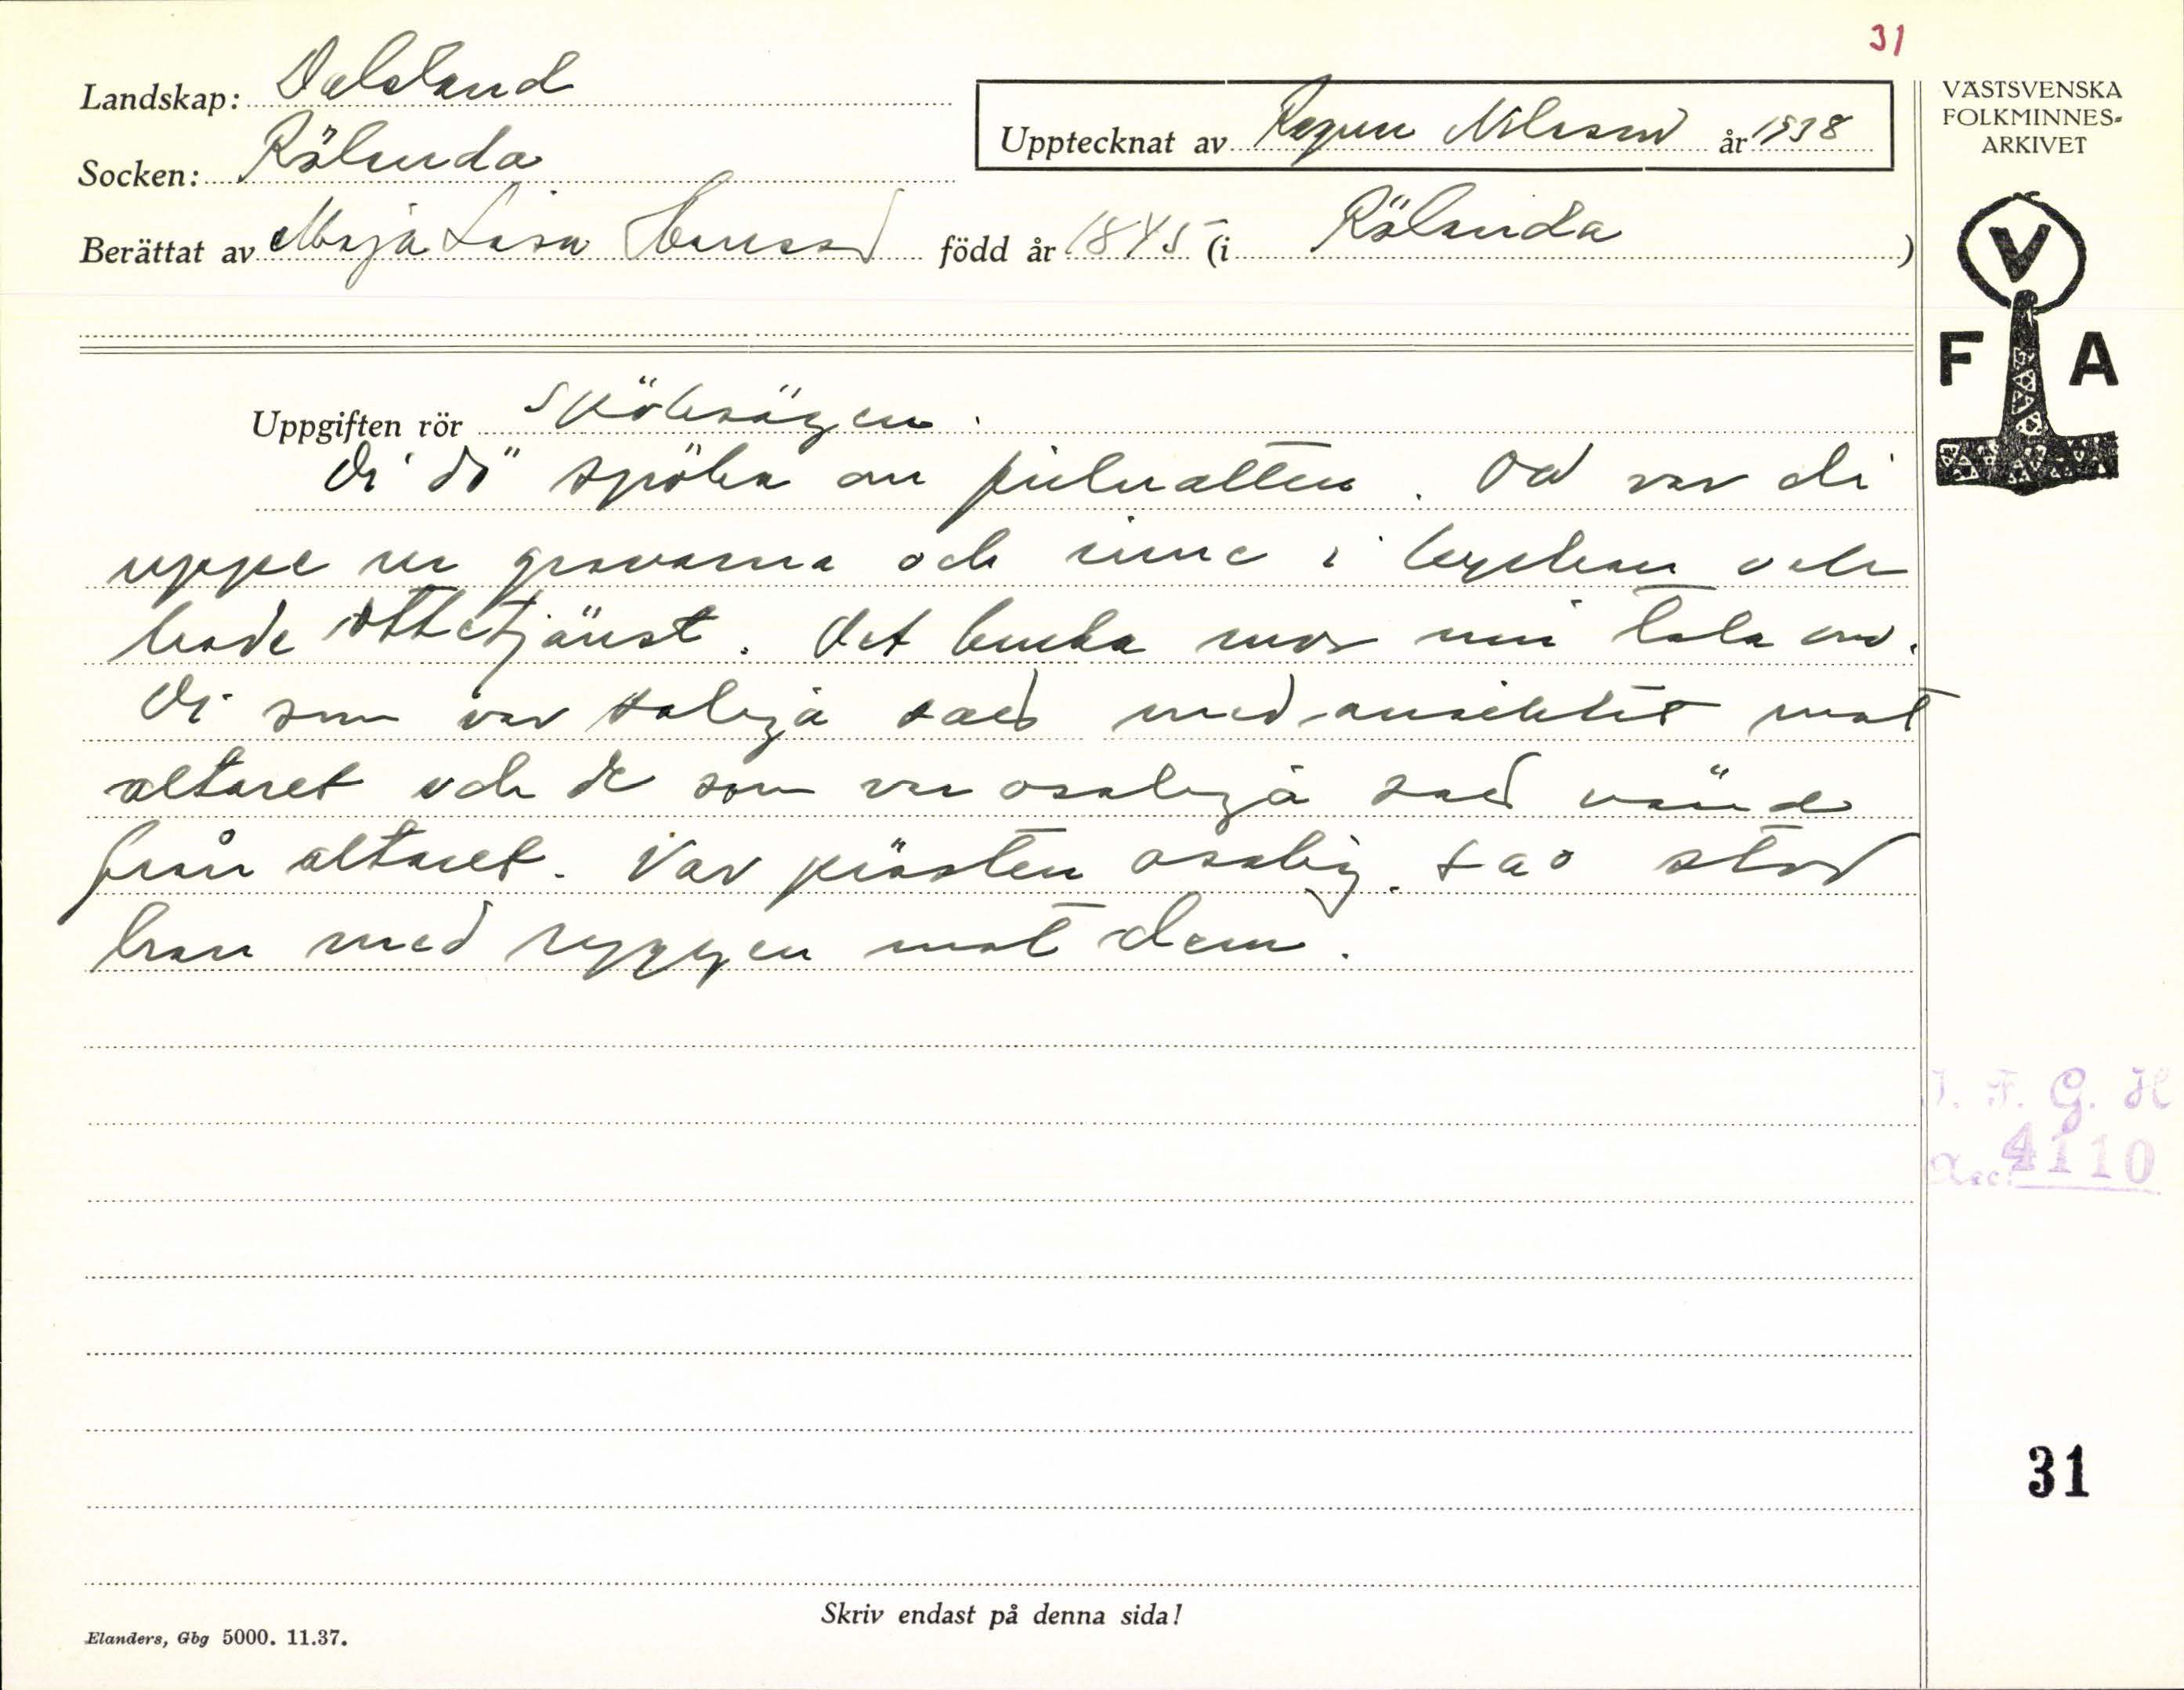 31
Landskap: Dalsland
Socken: Rölanda
Upptecknat av Ragnar Nilsson år 1938
VÄSTSVENSKA
FOLKMINNES-
ARKIVET
Berättat av Maja Lisa Hansson född år 1845 (i Rölanda)
V
F A
Uppgiften rör Spöksägen.
Di dö spöka om julnatten. Då var di
uppe ur gravarna och inne i kyrkan och
hade ottetjänst. Det bruka mor min tala om.
Di som var saliga satt med ansiktet mot
altaret och de som var osaliga satt vände
från altaret. Var prästen osalig. sao stod
han med ryggen mot dem.
I. F. G. H
Acc. 4110
31
Skriv endast på denna sida!
Elanders, Gbg 5000. 11.37.